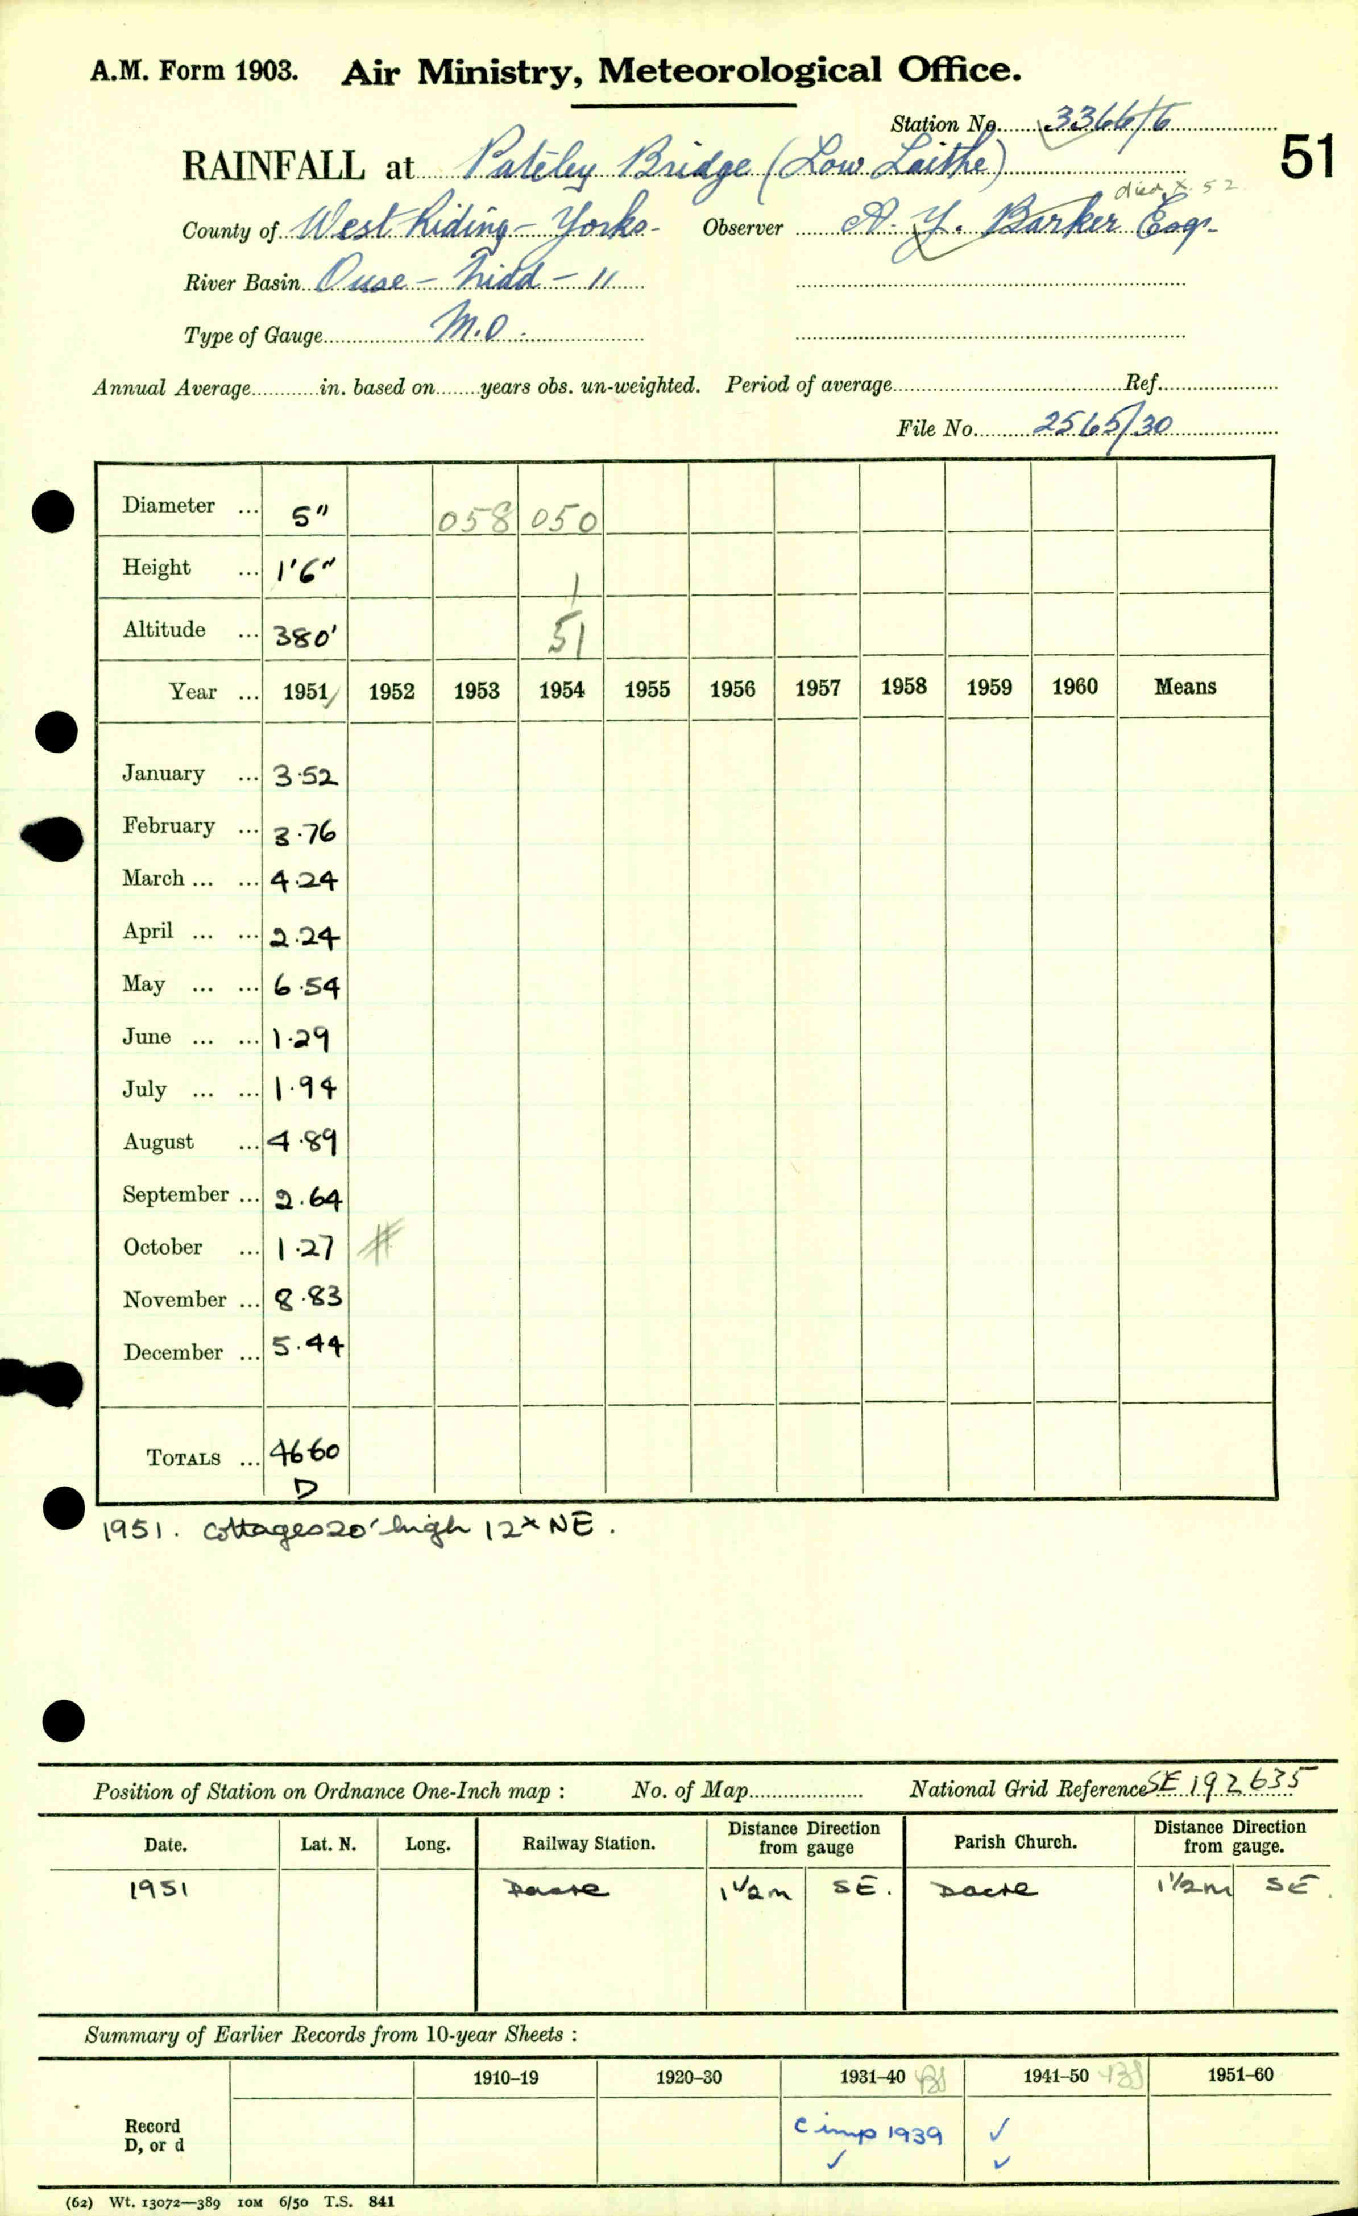 A.M. Form 1903. Air Ministry, Meteorological Office.
Station No. 3366/6
RAINFALL at Pateley Bridge (Low Laithe) 51
died X. 52
County of West Riding - Yorks - Observer A. Y. Barker Esq.
River Basin Ouse - Nidd - 11
Type of Gauge M.O.
Annual Average in. based on years obs. un-weighted. Period of average Ref.
File No. 2565/30
Diameter ... 5" 058 050
Height ... 1'6" 1
Altitude ... 380' 51
Year ... 1951 1952 1953 1954 1955 1956 1957 1958 1959 1960 Means
January ... 3.52
February ... 3.76
March ... ... 4.24
April ... ... 2.24
May ... ... 6.54
June ... ... 1.29
July ... ... 1.94
August ... 4.89
September ... 2.64
October ... 1.27
November ... 8.83
December ... 5.44
TOTALS ... 46.60
D
1951. Cottages 20' high 12x NE.
Position of Station on Ordnance One-Inch map : No. of Map National Grid Reference SE 192635
Date. Lat. N. Long. Railway Station. Distance Direction from gauge Parish Church. Distance Direction from gauge.
1951 Dacre 1½m SE. Dacre 1½m SE.
Summary of Earlier Records from 10-year Sheets :
1910–19 1920–30 1931–40 1941–50 1951–60
Record
D, or d
C imp 1939 ✓
✓ ✓
(62) Wt. 13072—389 10M 6/50 T.S. 841